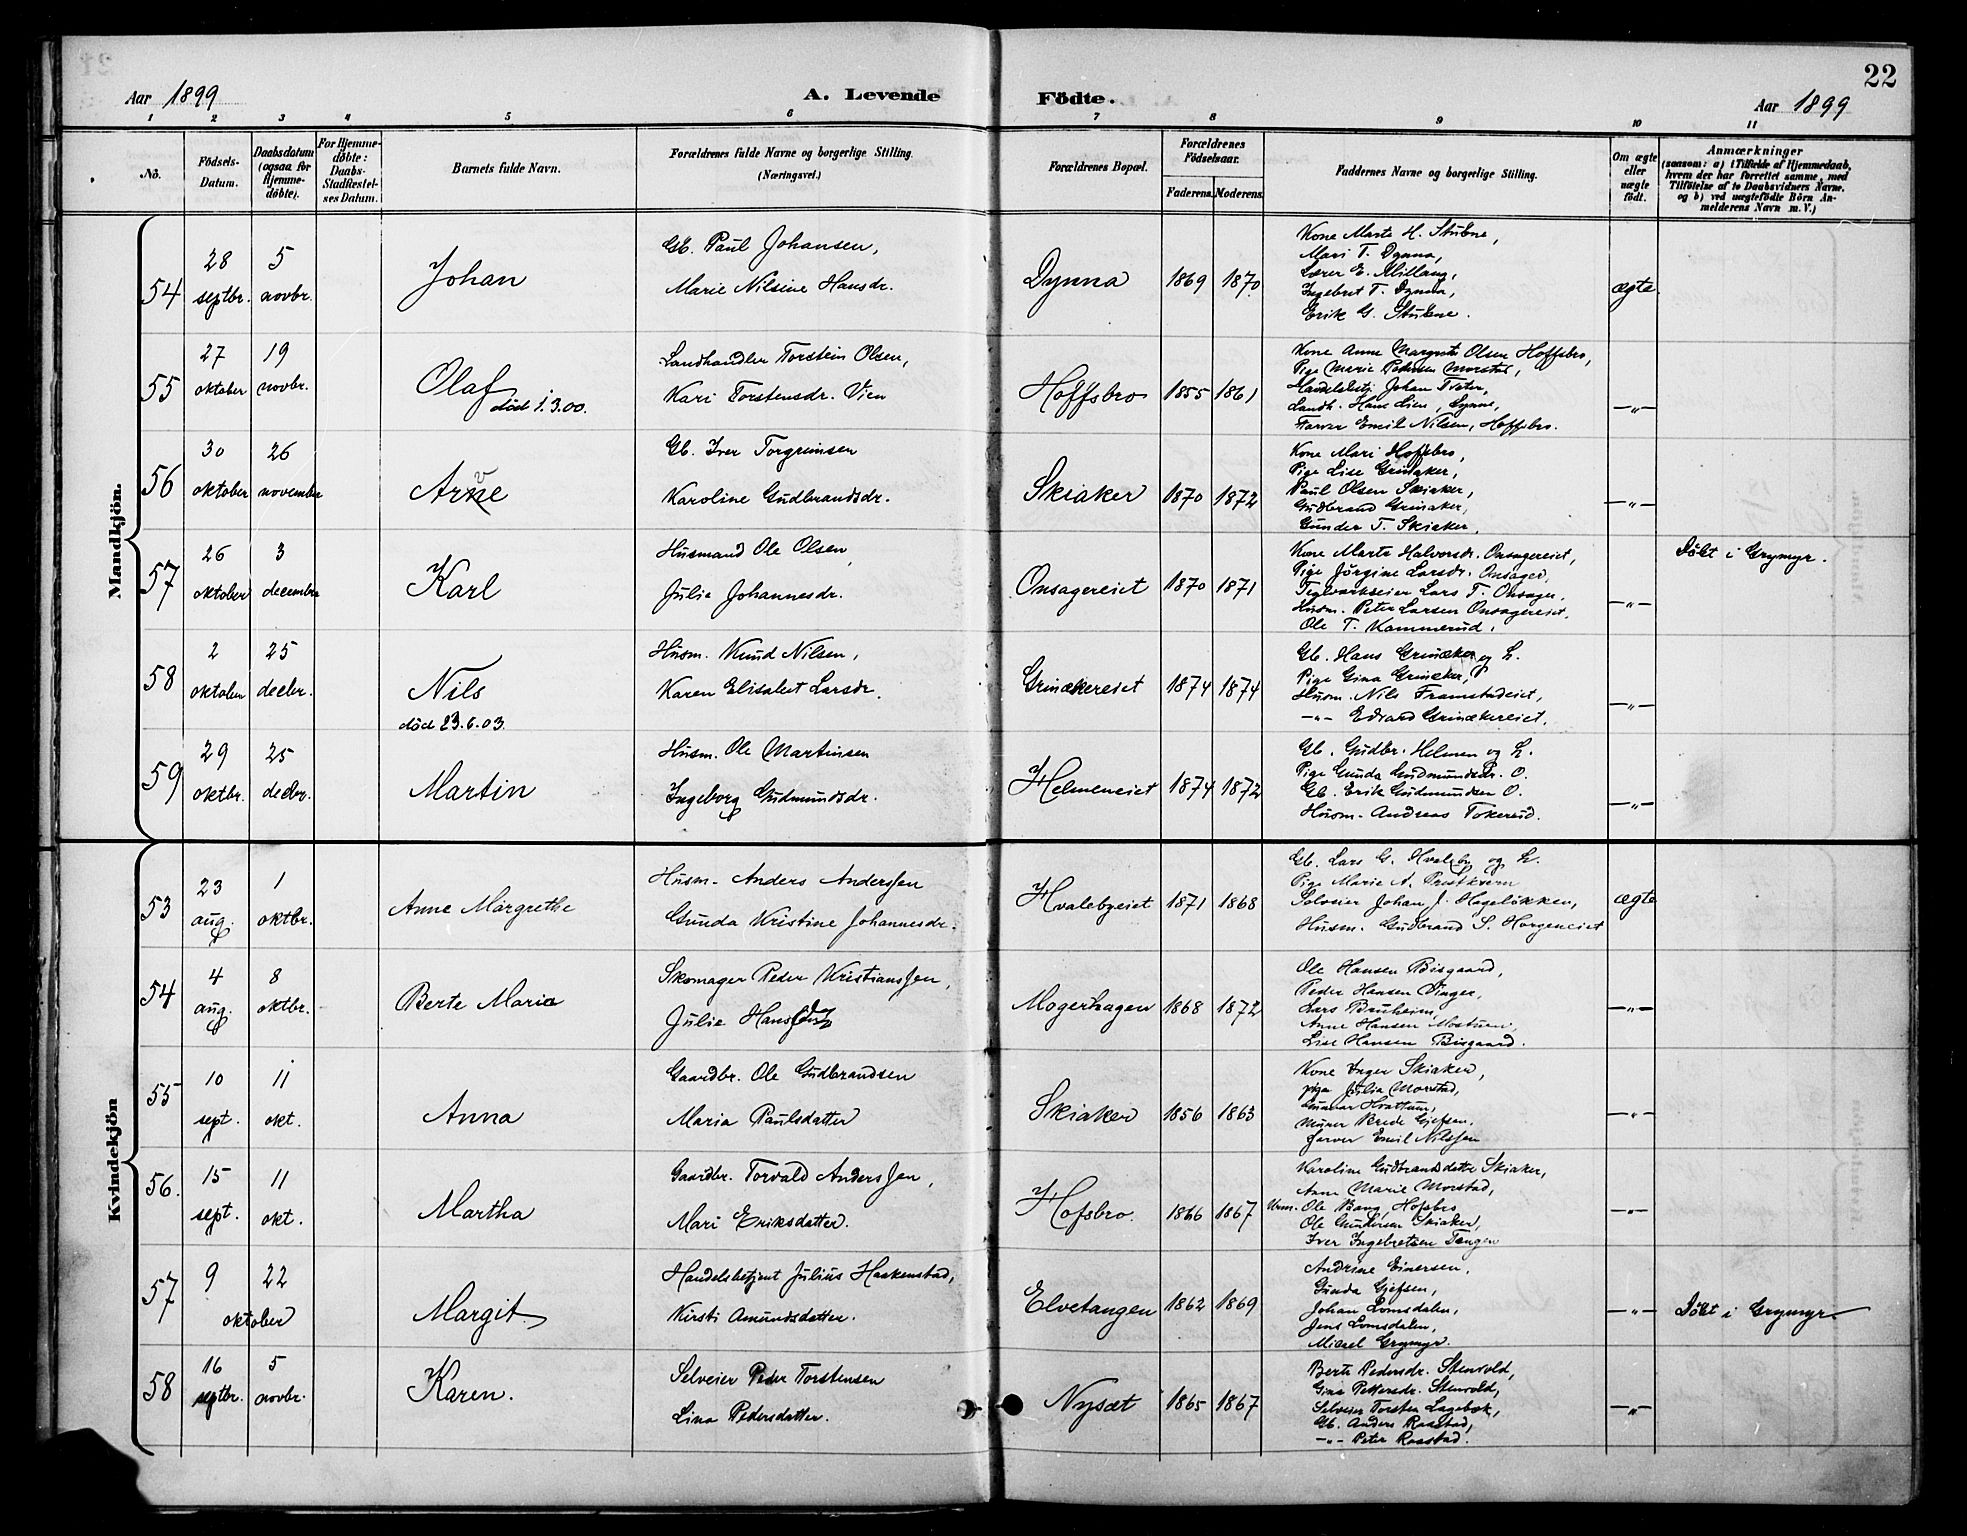 Aar 1899
A. Levende Födte.
22
Aar 1899
1 2 3 4 5 6 7 8 9 10 11
No.
Födsels-Datum.
Daabsdatum (ogsaa for Hjemme-döbte).
For Hjemme-döbte: Daabs-Stadfæstel-ses Datum.
Barnets fulde Navn.
Forældrenes fulde Navne og borgerlige Stilling.
(Næringsvei.)
Forældrenes Bopæl.
Forældrenes Födselsaar.
Faderens. Moderens.
Faddernes Navne og borgerlige Stilling.
Om ægte eller uægte födt.
Anmærkninger
(saasom: a) i Tilfælde af Hjemmedaab,
hvem der har forrettet samme, med
Tilföielse af to Daabsvidners Navne,
og b) ved uægtefödte Börn An-
melderens Navn m. V.)
Mandkjön.
54
28 septbr.
5 novbr.
Johan
Gb. Paul Johansen,
Marie Nilsine Hansdr.
Dynna
1869 1870
Kone Marte H. Stubne,
Mari T. Dynna,
Lærer E. Millang,
Ingebret T. Dynna,
Erik G. Stubne.
ægte.
55
27 oktober
19 novbr.
Olaf
död 1.3.00.
Landhandler Torstein Olsen,
Kari Torstensdr. Vien
Hoffsbro
1855 1861
Kone Anne Margrete Olsen Hoffsbro,
Pige Marie Pedersen Morstad,
Handelsbetj. Johan Tveter,
Landh. Hans Lien, Lynne,
Farver Emil Nilsen, Hoffsbro.
—„—
56
30 oktober
26 november
Arne
Gb. Iver Torgrimsen
Karoline Gudbrandsdr.
Skiaker
1870 1872
Kone Mari Hofsbro,
Pige Lise Grinaker,
Paul Olsen Skiaker,
Gudbrand Grinaker,
Gunder T. Skiaker.
—„—
57
26 oktober
3 decembre
Karl
Husmand Ole Olsen,
Julie Johannesdr.
Onsagereiet
1870 1871
Kone Marte Halvorsdr. Onsagereiet,
Pige Jörgine Larsdr. Onsager,
Teglværkseier Lars T. Onsager,
Husm. Peter Larsen Onsagereiet,
Ole T. Kammerud.
—„—
Döbt i Grymyr.
58
2 oktober
25 decbr.
Nils
död 23.6.03.
Husm. Knud Nilsen,
Karen Elisabet Larsdr.
Grinækereiet
1874 1874
Gb. Hans Grinæker og h.
Pige Gina Grinæker,
Husm. Nils Framstadeiet,
—„— Edvard Grinækereiet.
—„—
59
29 oktbr.
25 decbr.
Martin
Husm. Ole Martinsen
Ingeborg Gudmundsdr.
Helmeneiet
1874 1872
Gb. Gudbr. Helmen og h.
Pige Gunda Gudmundsdr. O.
Gb. Erik Gudmundsen O.
Husm. Andreas Tokerud.
—„—
Kvindekjön
53
23 aug.
1 oktbr.
Anne Margrethe
Husm. Anders Anderssen
Gunda Kristine Johannesdr.
Hvalebyeiet
1871 1868
Gb. Lars G. Hvaleby og h.
Pige Marie A. Prestkvern
Selveier Johan J. Hagelökken,
Husm. Gudbrand S. Horgeneiet
ægte
54
4 aug.
8 oktbr.
Berte Maria
Skomager Peder Kristianssen,
Julie
Mogerhagen
1868 1872
Ole Hansen Bisgaard,
Peder Hansen Vinger,
Lars Bruheim,
Anne Hansen Mostuen,
Lise Hansen Bisgaard.
—„—
55
10 sept.
11 okt.
Anna
Gaardbr. Ole Gudbrandsen
Maria Paulsdatter
Skiaker
1856 1863
Kone Inger Skiaker,
pige Julia Morstad,
Gunnar Hvattum,
Murer Brede Gjefsen,
farver Emil Nilssen
—„—
56.
15 sept.
11 okt.
Martha
Gaardbr. Torvald Anderssen,
Mari Eriksdatter.
Hofsbro.
1866 1867
Karoline Gudbrandsdatter Skiaker,
Anne Marie Morstad,
Urm. Ole Bang, Hofsbro
Ole Gundersen Skiaker,
Iver Ingebretsen Tangen
—„—
57
9 22
oktober
Margit
Handelsbetjent Julius Haakenstad,
Kirsti Amundsdatter.
Elvetangen
1862 1869
Andrine Einersen,
Gunda Gjefsen,
Johan Lomsdalen,
Jens Lomsdalen,
Mikael Grymyr.
—„—
Döbt i Grymyr
58
16 septbr.
5 novbr.
Karen.
Selveier Peder Torstensen
Lina Pedersdatter.
Nysæt
1865 1867
Berte Pedersdr. Stenvold,
Gina Pettersdr. Stenvold,
Selveier Torsten Lagebæk,
Gb. Anders Raastad,
—„— Peter Raastad.
—„—